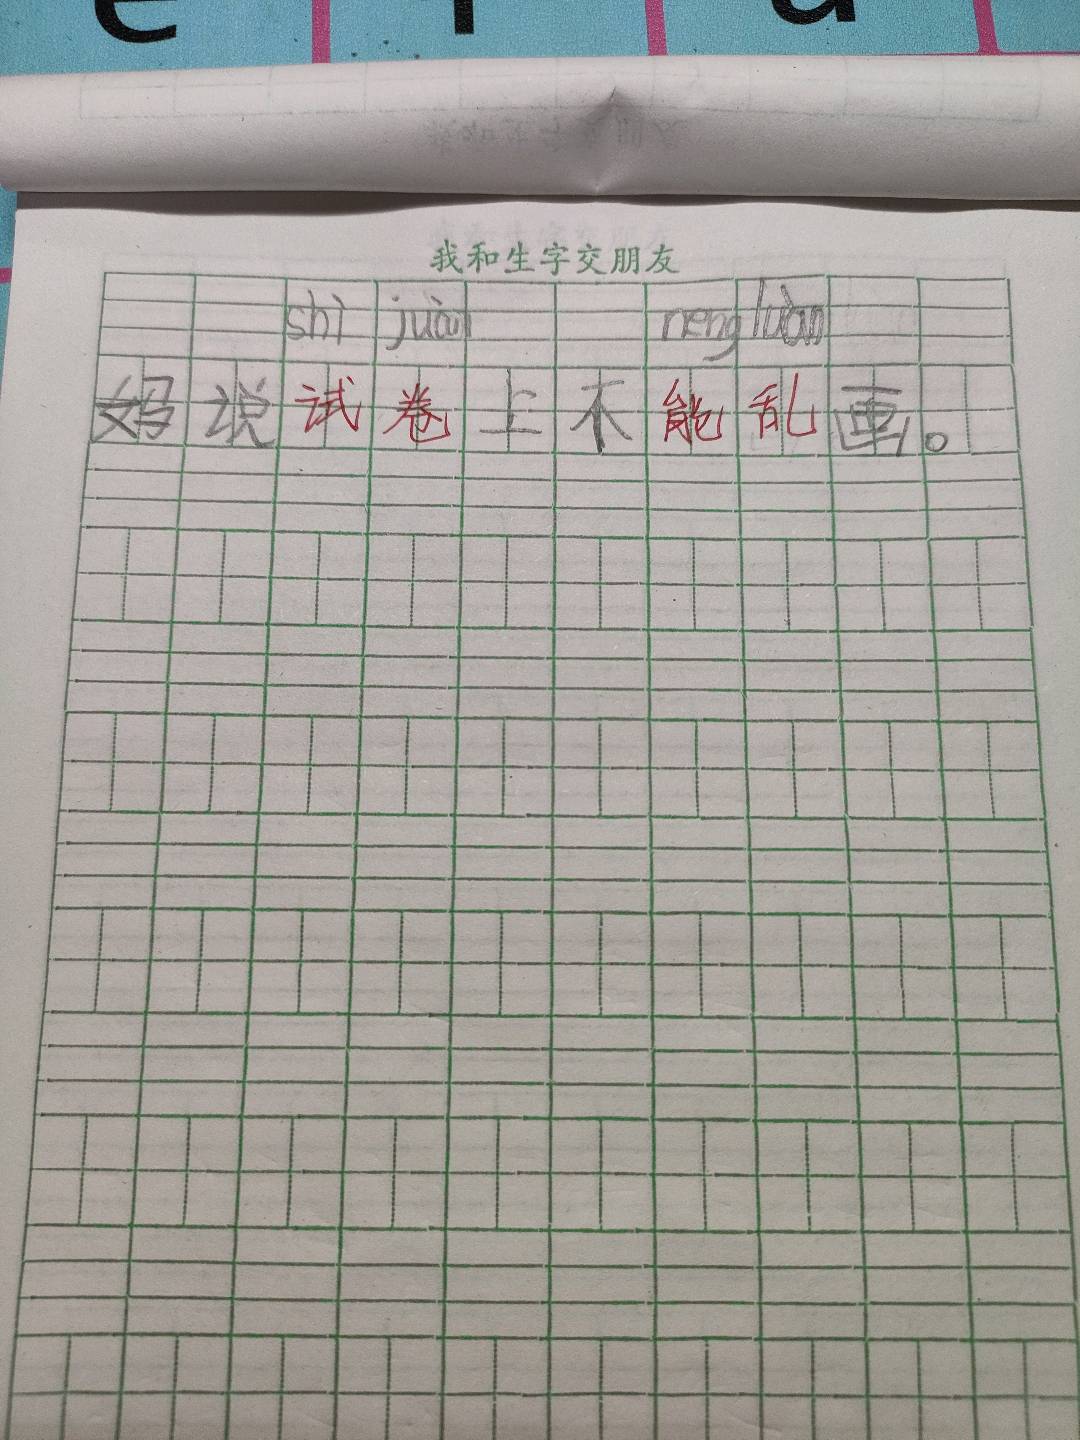 我和生字交朋友
shì juàn neng luàn
妈说试卷上不能乱画。